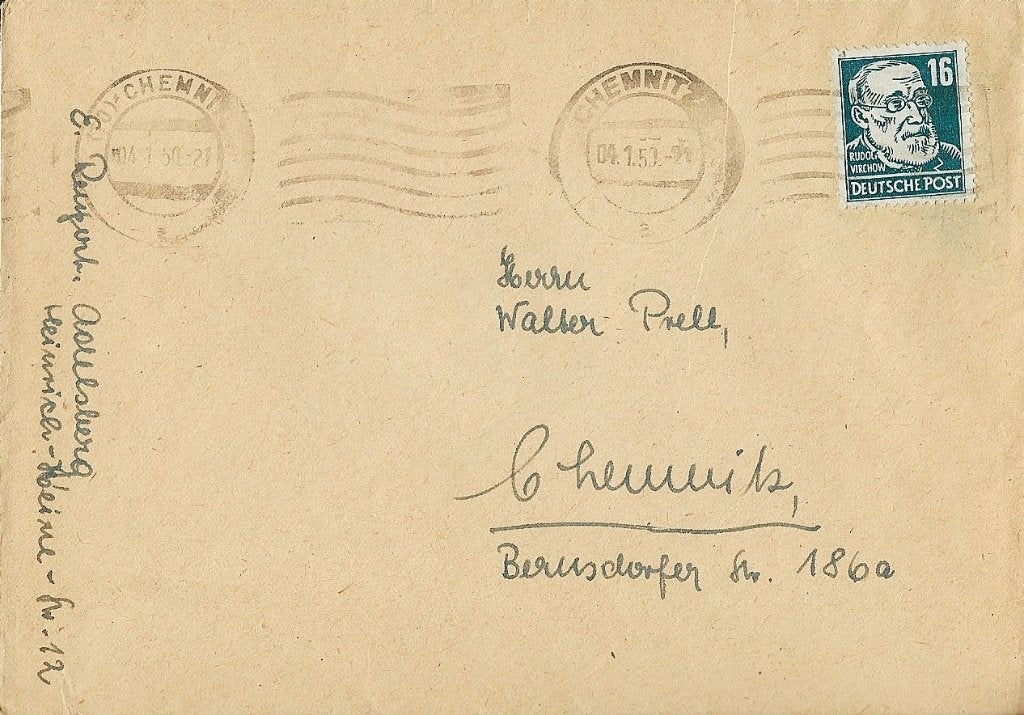 CHEMNI
04.1.50.-21
CHEMNITZ
04.1.50.-21
16
RUDOLF
VIRCHOW
DEUTSCHE POST
Herrn
Walter Prell,
Chemnitz,
Bernsdorfer Str. 186a
E. Adelsberg
Heinrich-Heine-Str. 12